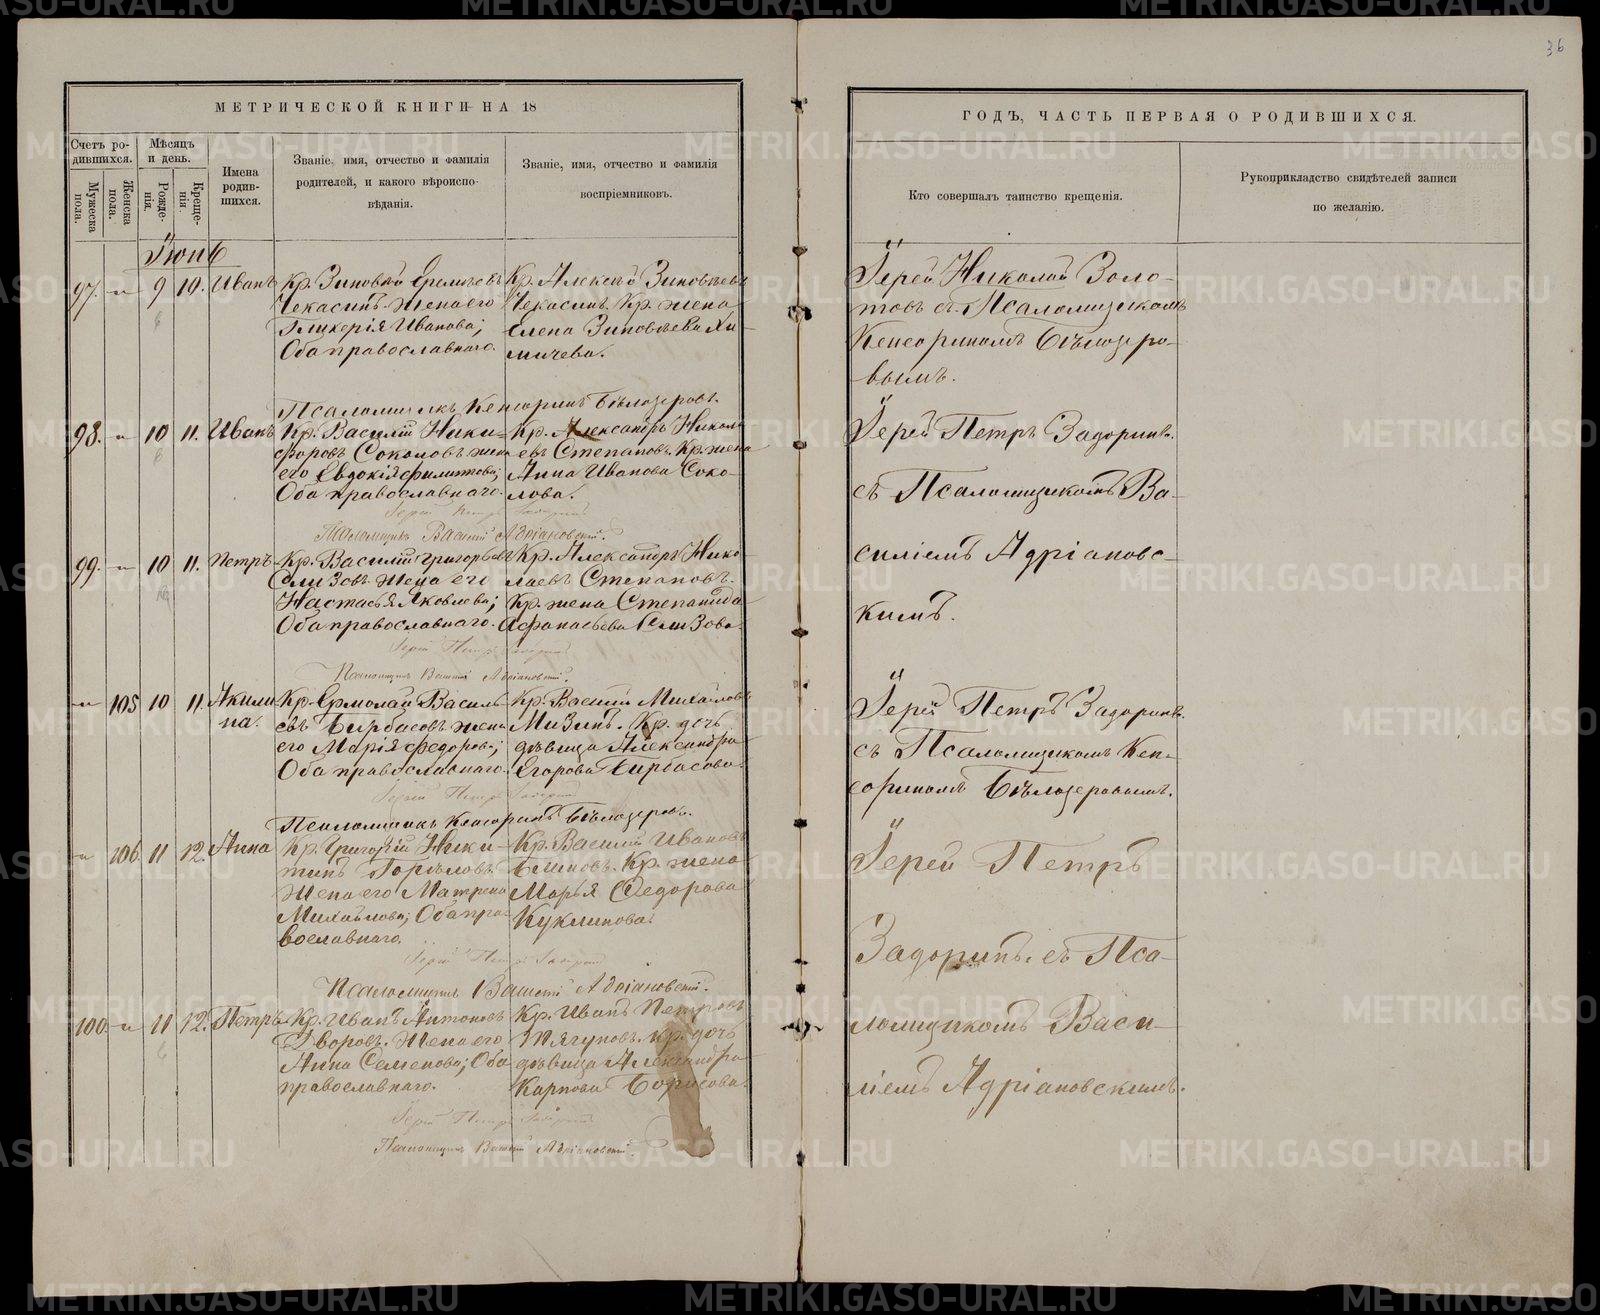 36
МЕТРИЧЕСКОЙ КНИГИ НА 18
ГОДЪ, ЧАСТЬ ПЕРВАЯ О РОДИВШИХСЯ.
Счетъ ро-
дившихся.
Мужеска
пола.
Женска
пола.
Мѣсяцъ
и день.
Рожде-
нія.
Креще-
нія.
Имена
родив-
шихся.
Званіе, имя, отчество и фамилія
родителей, и какого вѣроиспо-
вѣданія.
Званіе, имя, отчество и фамилія
воспріемниковъ.
Кто совершалъ таинство крещенія.
Рукоприкладство свидѣтелей записи
по желанію.
97. 9 10. Иванъ
Кр. Зиновій
Чекасинъ. Жена его
Гликерія Иванова;
Оба православнаго.
Кр. Алексѣй Зиновьевъ
Чекасинъ. Кр. жена
Елена Зиновьева
Іерей Николай Золо-
товъ съ Псаломщикомъ
Кенсориномъ Бѣлозеро-
вымъ.
Псаломщикъ Кенсоринъ Бѣлозеровъ.
98. 10 11. Иванъ
Кр. Василій Ники-
форовъ Соколовъ жена
его Евдокія Филипова;
Оба православнаго.
Кр. Александръ Никола
евъ Степановъ. Кр. жена
Анна Иванова Соко-
лова.
Іерей Петръ Задоринъ
Псаломщикъ Василій Адріановскій.
Іерей Петръ Задоринъ.
съ Псаломщикомъ Ва-
силіемъ Адріановс-
кимъ.
99. 10 11. Петръ
Кр. Василій Григорьевъ
жена его
Настасья Яковлева;
Оба православнаго.
Кр. Александръ Нико-
лаевъ Степановъ.
Кр. жена Степанида
Афанасьева
Іерей Петръ Задоринъ
Псаломщикъ Василій Адріановскій.
105 10 11. Акили
на.
Кр. Ермолай Василь
евъ Бирбасовъ жена
его Марія Федорова;
Оба православнаго.
Кр. Василій Михайловъ
Мизинъ. Кр. дочь
дѣвица Александра
Егорова Бирбасова
Іерей Петръ Задоринъ
Іерей Петръ Задоринъ.
съ Псаломщикомъ Кен-
сориномъ Бѣлозеровымъ.
Псаломщикъ Кенсоринъ Бѣлозеровъ.
106. 11 12. Анна
Кр. Григорій Ники-
тинъ Горѣловъ
Жена его Матрена
Михайлова; Оба пра-
вославнаго.
Кр. Василій Ивановъ
Блиновъ. Кр. жена
Марья Федорова
Куклинова.
Іерей Петръ Задоринъ
Псаломщикъ Василій Адріановскій.
Іерей Петръ
Задоринъ. съ Пса-
ломщикомъ Васи-
ліемъ Адріановскимъ.
100. 11 12. Петръ
Кр. Иванъ Антоновъ
Жена его
Анна Семенова; Оба
православнаго.
Кр. Иванъ Петровъ
Тягуновъ. Кр. дочь
дѣвица Александра
Карпова Борисова.
Іерей Петръ Задоринъ
Псаломщикъ Василій Адріановскій.
METRIKI.GASO-URAL.RU